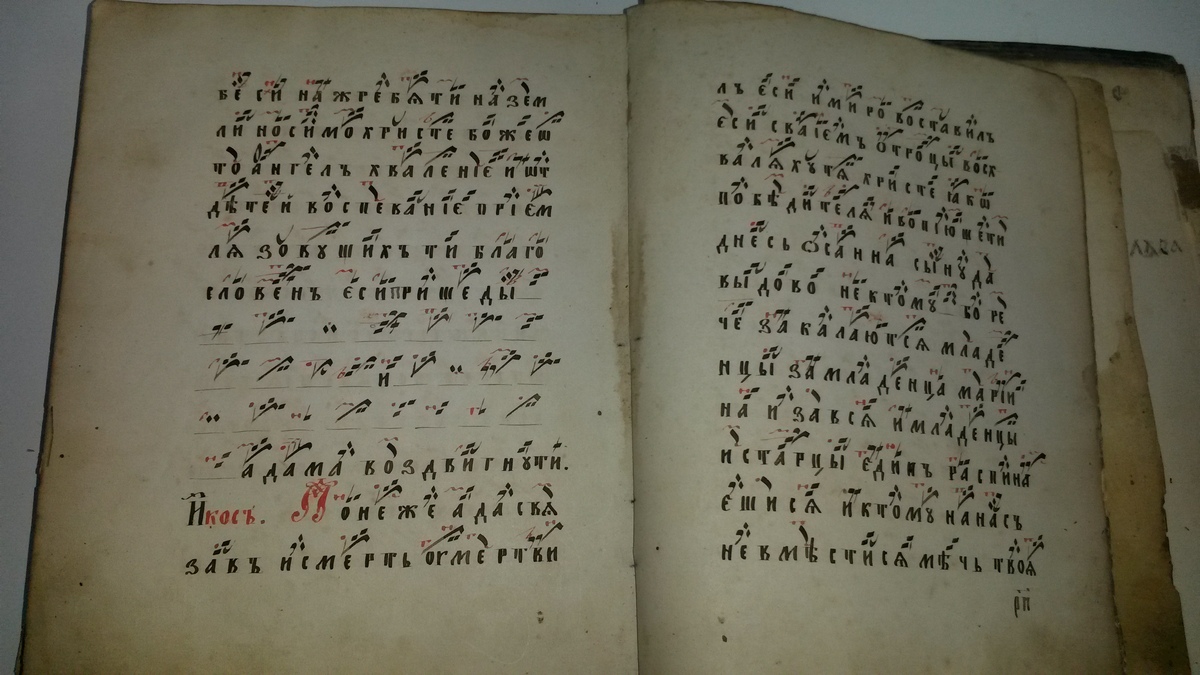 бе́ си́ на жре́бѧти на зе́м
ли носи́мо христе бо́же ѿ
то а́нгелъ хваленїе и ѿ
дѣте́й воспева́нїе прїе́м
лѧ зовꙋщихъ ти благо
слове́нъ є҆си́ прише́ды
и
адама воздви́гнꙋти.
И҆́косъ. Поне́же ада свѧ
завъ и҆ сме́рть оу҆ме́ртви
лъ є҆си́ и ми́ръ воста́вилъ
є҆си́ с ваїемъ ѻтро́цы восх
валѧхꙋ тѧ христе ꙗкѡ
побѣди́телѧ и вопїюще ти
дне́сь ѻ҆са́нна сы́нꙋ да
вы́дово не ктомꙋ̀ бо ре
че зака́лаютсѧ младе
нцы за младе́нца марїи
на и за всѧ и младе́нцы
и ста́рцы є҆ди́нъ распина
є́шисѧ и ктомꙋ на на́съ
не вмѣсти́сѧ ме́чь твоѧ
рп